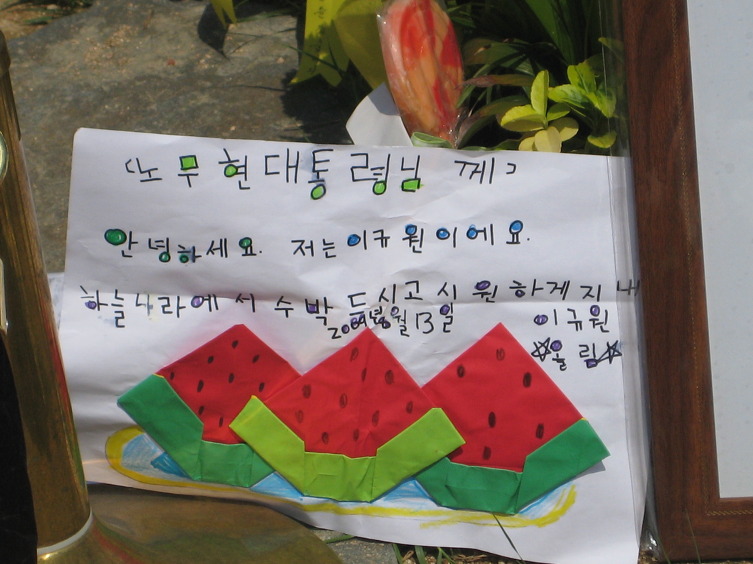 <노무현대통령님 께>
안녕하세요. 저는 이규원이에요.
하늘나라에서 수박 드시고 시원하게 지내
13일
이규원
☆올림☆